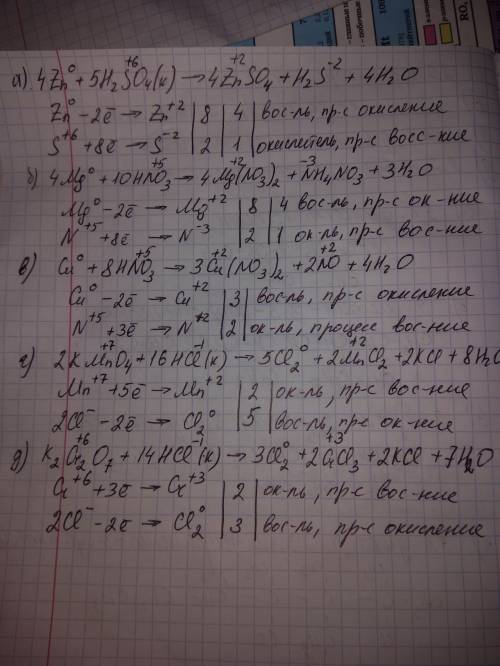 а) 4Zn⁰ + 5H₂S⁺⁶O₄(к) → 4Zn⁺²SO₄ + H₂S⁻² + 4H₂O
Zn⁰ - 2ē → Zn⁺² | 8 | 4 | вос-ль, пр-с окисление
S⁺⁶ + 8ē → S⁻² | 2 | 1 | окислитель, пр-с восс-ние
б) 4Mg⁰ + 10HN⁺⁵O₃ → 4Mg⁺²(NO₃)₂ + N⁻³H₄NO₃ + 3H₂O
Mg⁰ - 2ē → Mg⁺² | 8 | 4 вос-ль, пр-с ок-ние
N⁺⁵ + 8ē → N⁻³ | 2 | 1 ок-ль, пр-с вос-ние
в) Cu⁰ + 8HN⁺⁵O₃ → 3Cu⁺²(NO₃)₂ + 2N⁺²O + 4H₂O
Cu⁰ - 2ē → Cu⁺² | 3 | вос-ль, пр-с окисление
N⁺⁵ + 3ē → N⁺² | 2 | ок-ль, процесс вос-ние
г) 2KMn⁺⁷O₄ + 16HCl⁻¹(к) → 5Cl₂⁰ + 2Mn⁺²Cl₂ + 2KCl + 8H₂O
Mn⁺⁷ + 5ē → Mn⁺² | 2 | ок-ль, пр-с вос-ние
2Cl⁻ - 2ē → Cl₂⁰ | 5 | вос-ль, пр-с ок-ние
д) K₂Cr₂⁺⁶O₇ + 14HCl⁻¹(к) → 3Cl₂⁰ + 2Cr⁺³Cl₃ + 2KCl + 7H₂O
Cr⁺⁶ + 3ē → Cr⁺³ | 2 | ок-ль, пр-с вос-ние
2Cl⁻ - 2ē → Cl₂⁰ | 3 | вос-ль, пр-с окисление